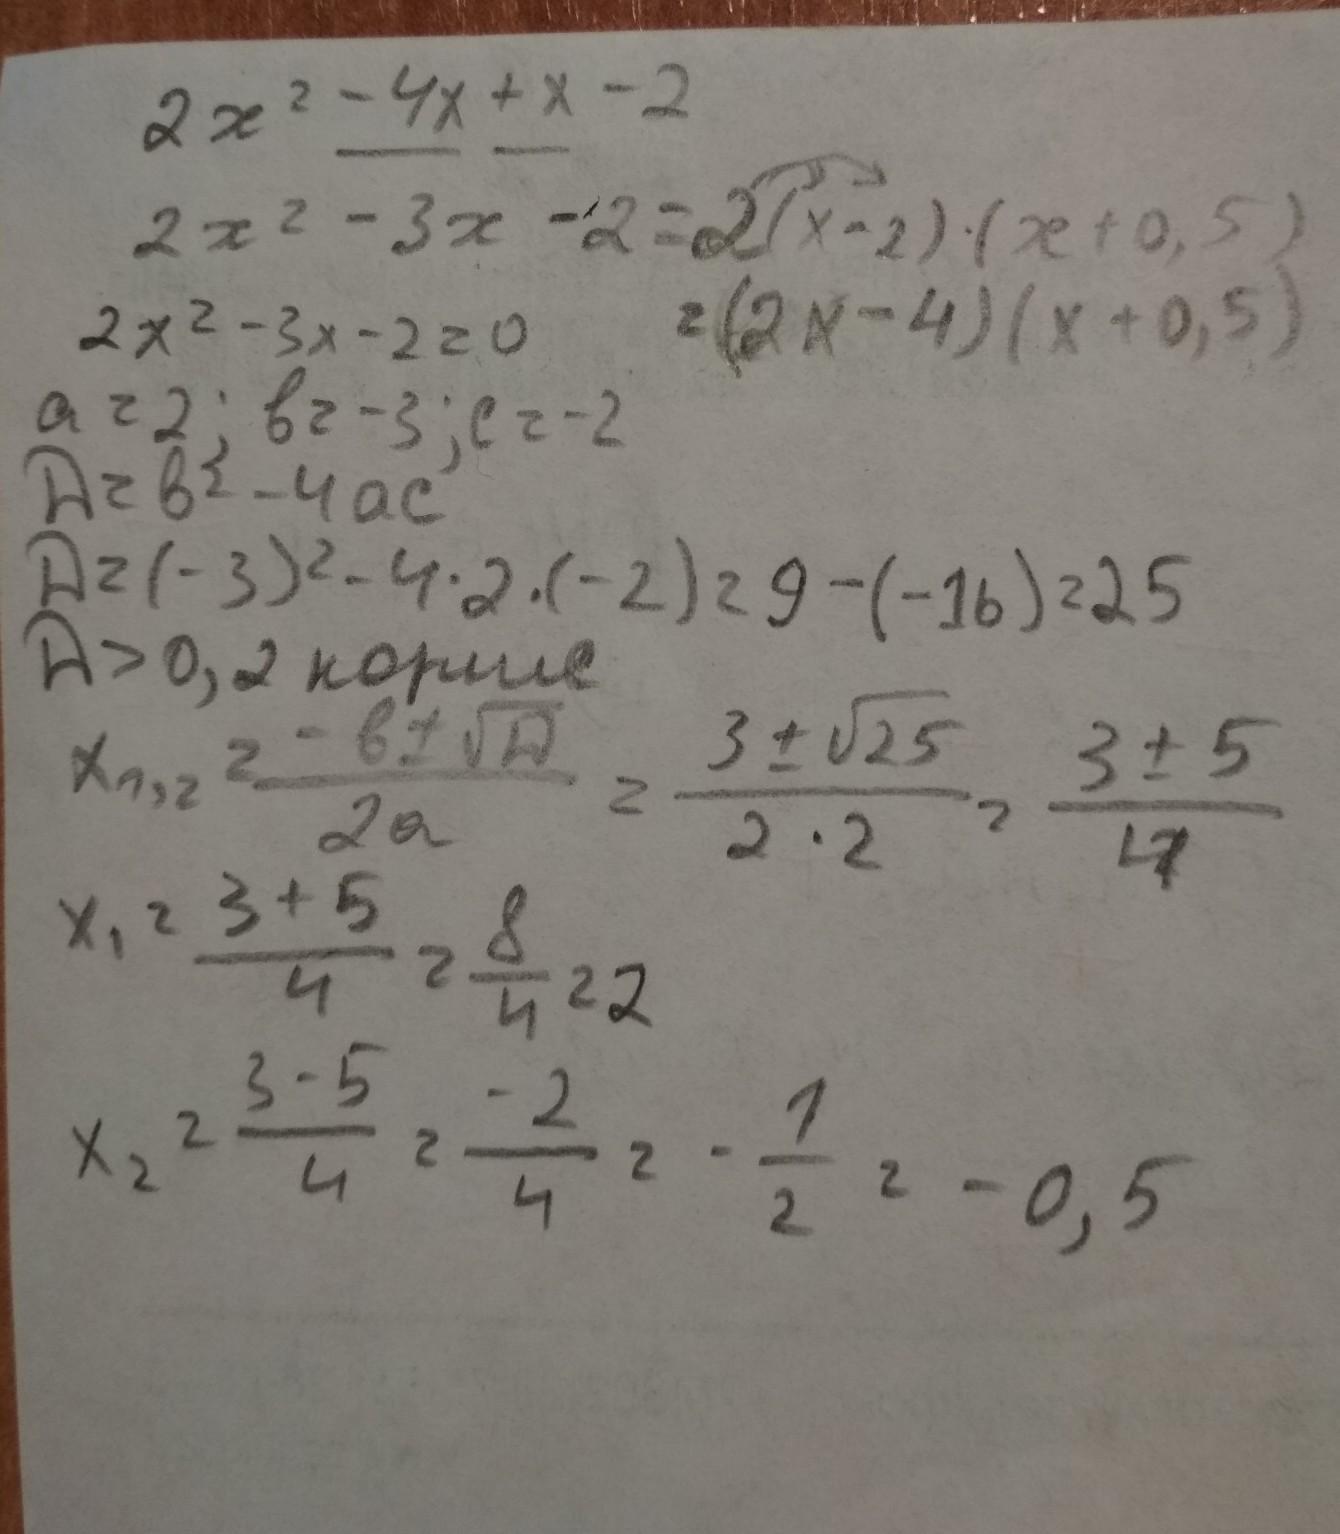 2x² - 4x + x - 2
2x² - 3x - 2 = 2(x - 2)·(x + 0,5)
= (2x - 4)(x + 0,5)
2x² - 3x - 2 = 0
a = 2; b = -3; c = -2
D = b² - 4ac
D = (-3)² - 4·2·(-2) = 9 - (-16) = 25
D > 0, 2 корние
x₁,₂ = (-b ± √D)/(2a) = (3 ± √25)/(2·2) = (3 ± 5)/4
x₁ = (3 + 5)/4 = 8/4 = 2
x₂ = (3 - 5)/4 = -2/4 = -1/2 = -0,5